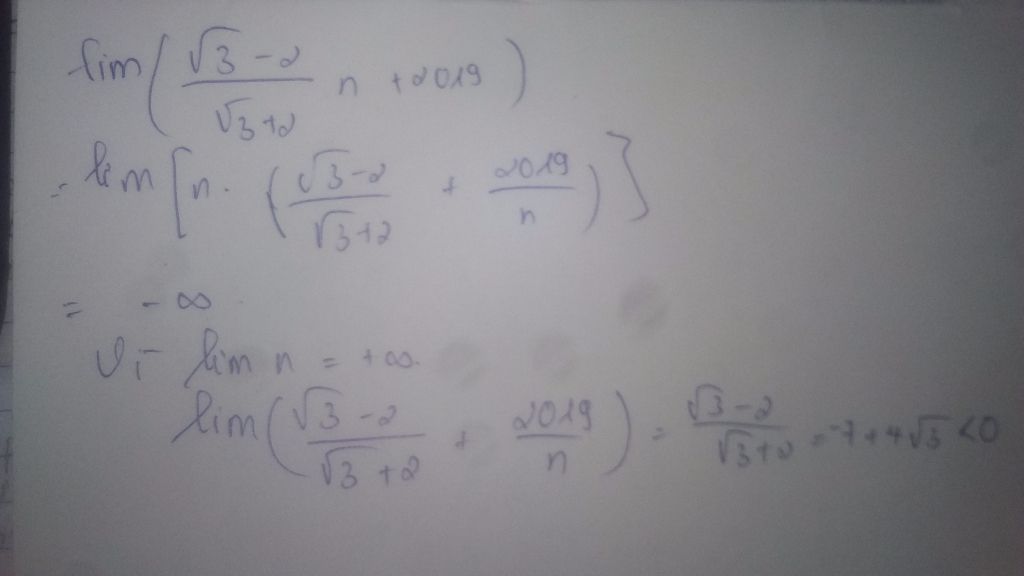 lim( (√3 - 2)/(√3 + 2) n + 2019 )
= lim [ n. ( (√3 - 2)/(√3 + 2) + 2019/n ) ]
= - ∞
Vì lim n = +∞.
lim( (√3 - 2)/(√3 + 2) + 2019/n ) = (√3 - 2)/(√3 + 2) = -7 + 4√3 < 0